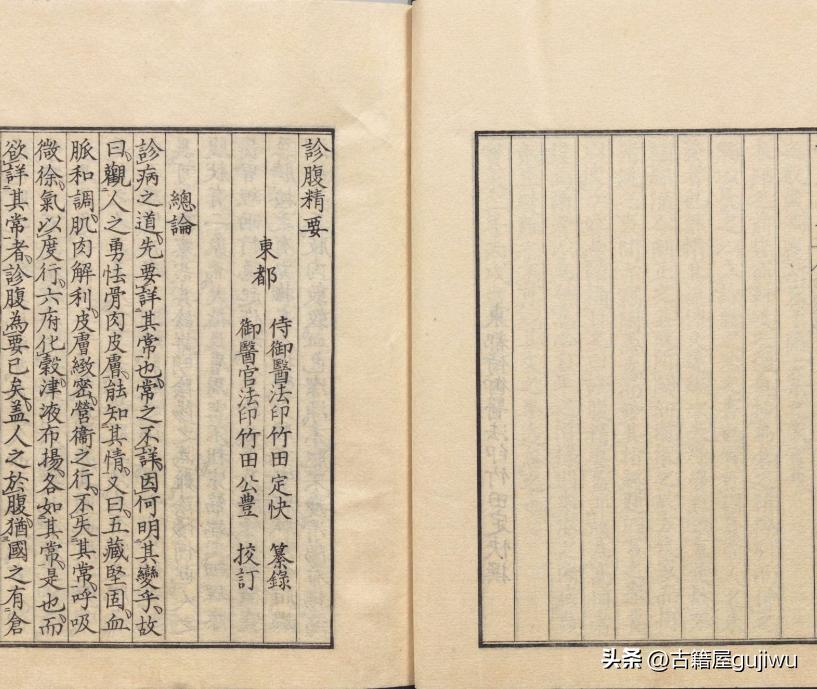 診腹精要
東都
侍御醫法印竹田定快 纂錄
御醫官法印竹田公豊 挍訂
總論
診病之道先要詳其常也常之不詳因何明其變乎故
曰觀人之勇怯骨肉皮膚能知其情又曰五藏堅固血
脈和調肌肉解利皮膚緻密營衞之行不失其常呼吸
微徐氣以度行六府化穀津液布揚各如其常是也而
欲詳其常者診腹為要已矣蓋人之於腹猶國之有倉
头条 @古籍屋gujiwu